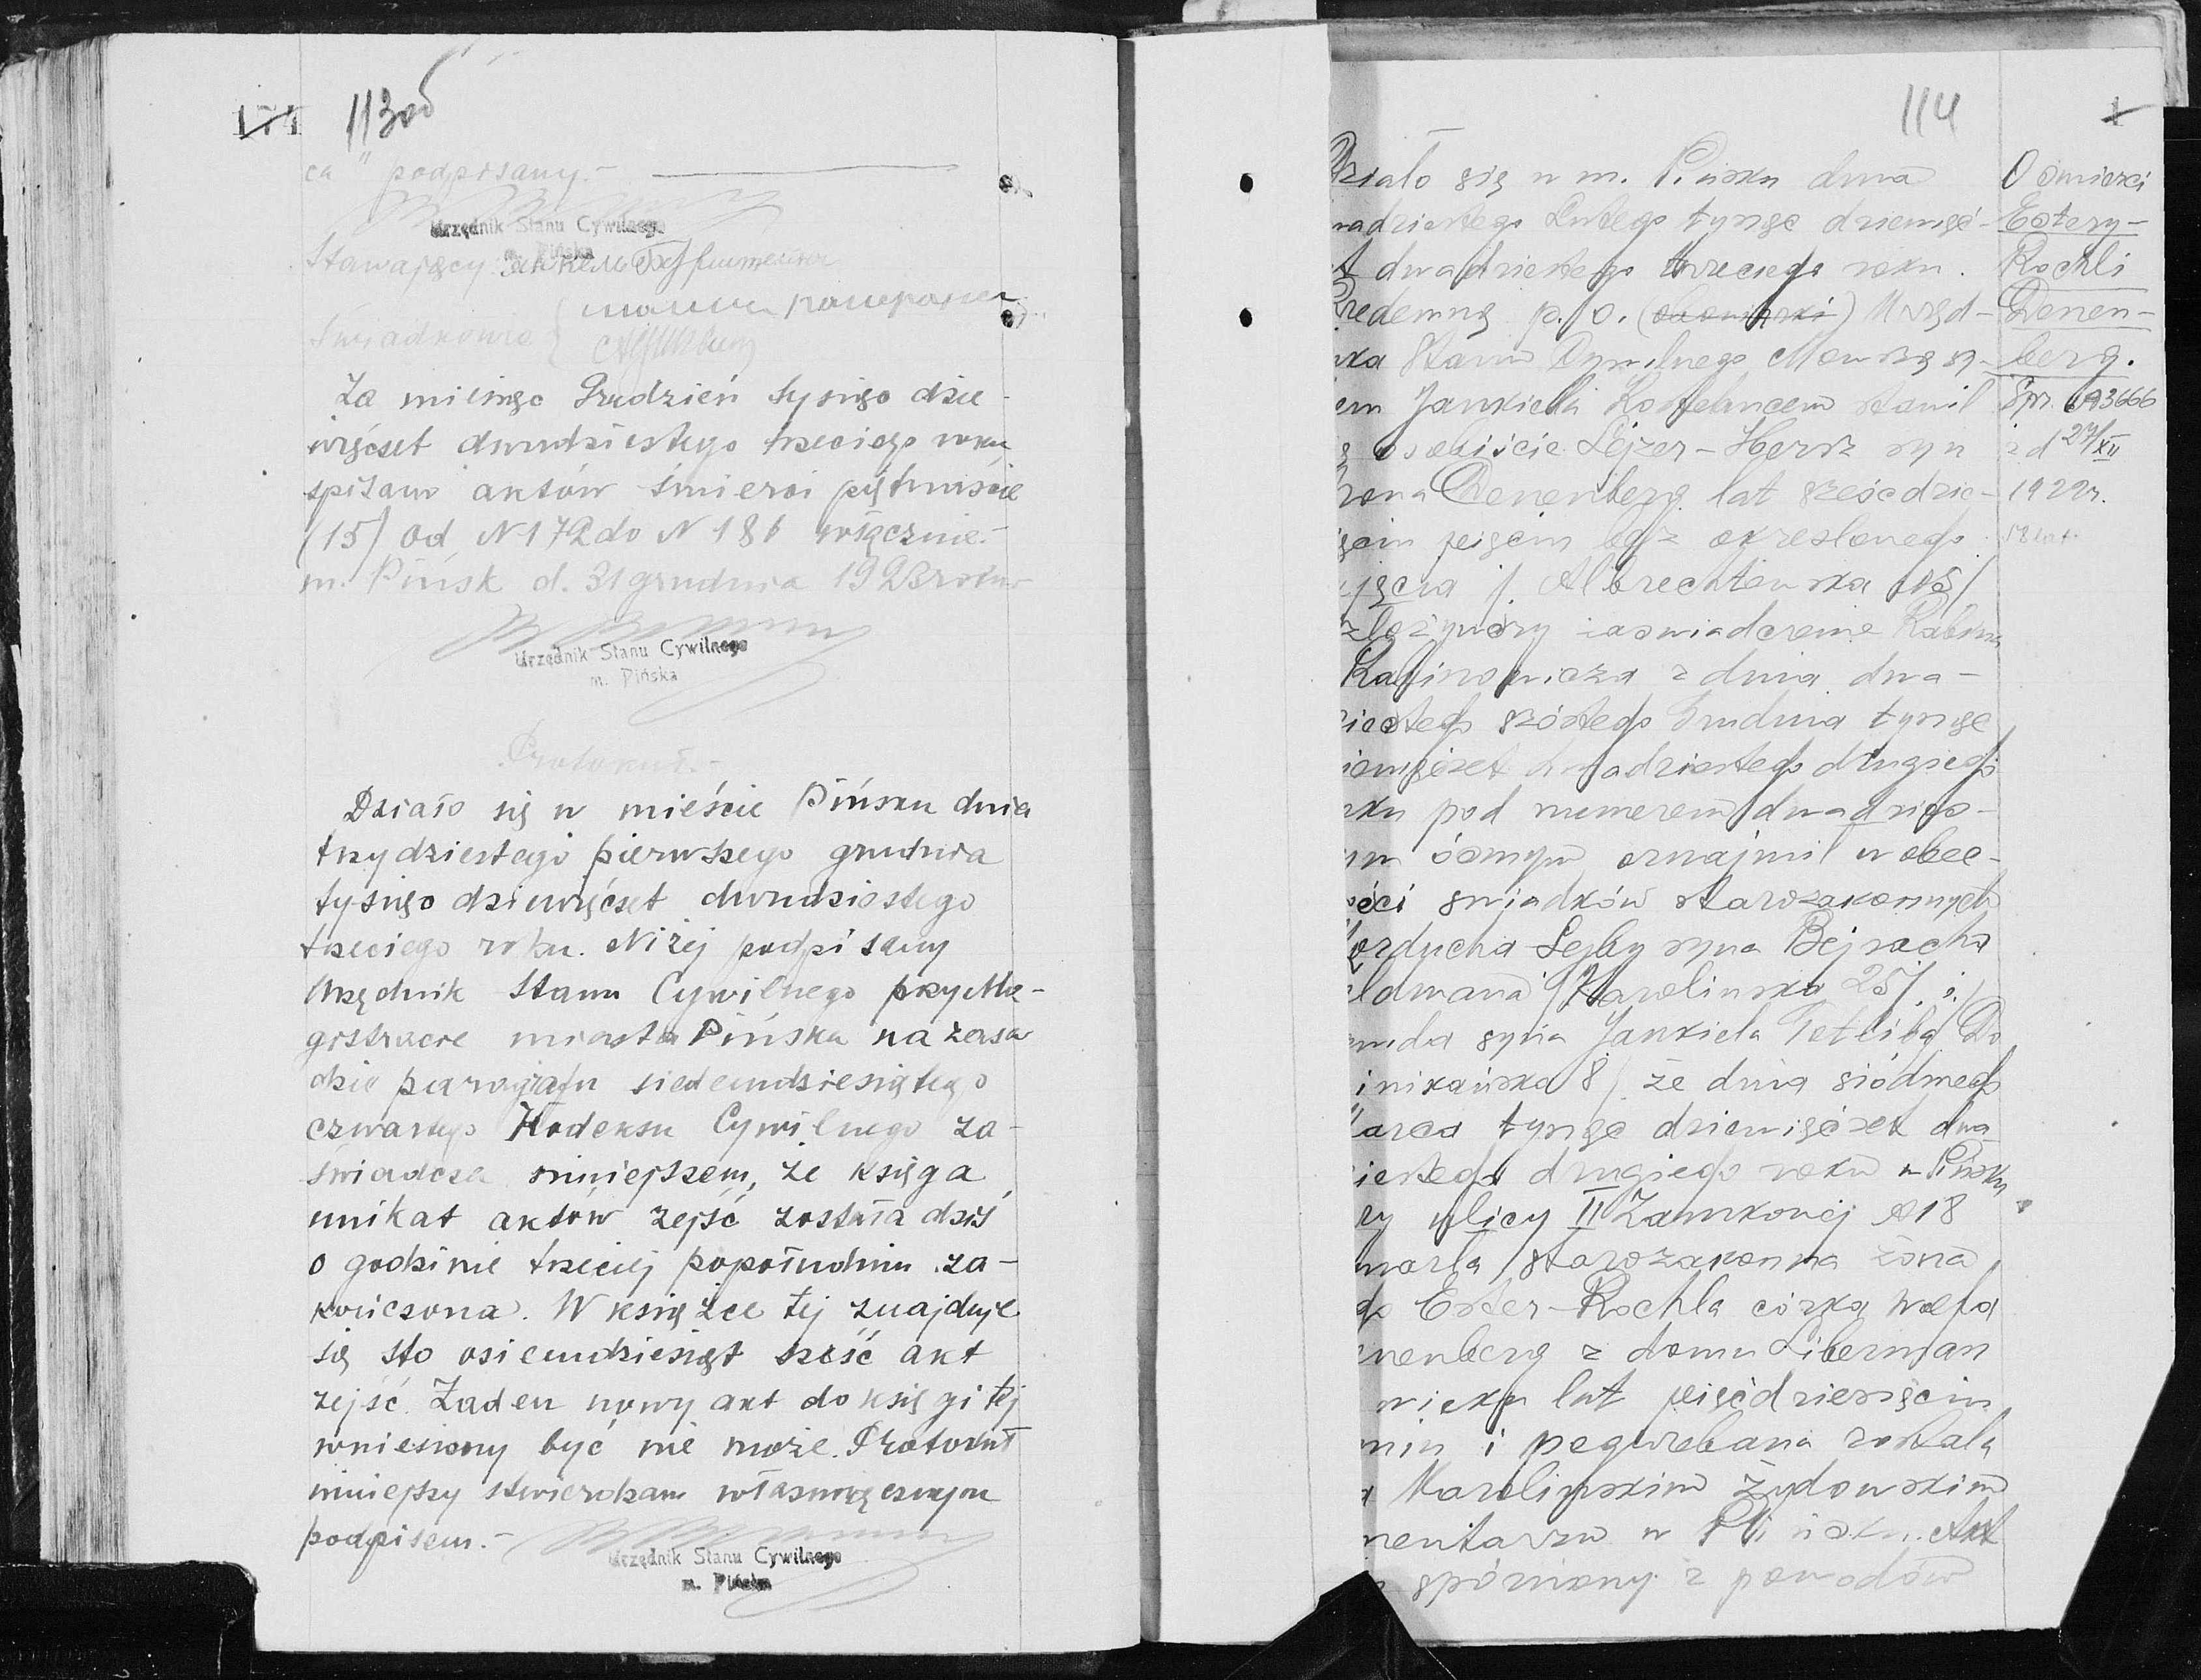 174
113об
ca" podpisany.-
Urzędnik Stanu Cywilnego
m. Pińska
Stawający:
Świadkowie
Za miesiąc Grudzień tysiąc dzie-
więćset dwudziestego trzeciego roku
spisano aktów śmierci piętnaście
(15) od N 172 do N 186 włącznie.-
m. Pińsk d. 31 grudnia 1923 roku
Urzędnik Stanu Cywilnego
m. Pińska
Protokuł.-
Działo się w mieście Pińsku dnia
trzydziestego pierwszego grudnia
tysiąc dziewięćset dwudziestego
trzeciego roku. Niżej podpisany
Urzędnik Stanu Cywilnego przy Ma-
gistracie miasta Pińska na zasa
dzie paragrafu siedemdziesiątego
czwartego Kodeksu Cywilnego za-
świadcza niniejszem, że księga
unikat aktów zejść została dziś
o godzinie trzeciej popołudniu za-
kończona. W księżce tej znajduje
się sto osiemdziesiąt sześć akt
zejść. Żaden nowy akt do księgi tej
wniesiony być nie może. Protokuł
niniejszy stwierdzam własnoręcznym
podpisem.-
Urzędnik Stanu Cywilnego
m. Pińska
114
1
Działo się w m. Pińsku dwu
nadziestego Lutego tysiąc dziewięć-
t dwadziestego trzeciego roku.
Predemną p. o. Urzęd-
ika Stanu Cywilnego
em Jankiela stawił
ę osobiście Lejzer-Hersz syn
Denenberg lat sześćdzie-
ięciu pięciu bez określonego
zajęcia /. Albrechtowska
złożywszy zaświadczenie Rabina
z dnia dwa-
ziestego szóstego Grudnia tysiąc
iewięćset dwadziestego drugiego
oku pod numerem dwadzies-
ym ósmym oznajmił w obec-
ości świadków starozakonnych
orducha Lejby syna Bejnocha
eldmana /Karolinska 25/ i
syna Jankiela /Do
inikańska 8/ że dnia siódmego
arca tysiąc dziewięćset dwa
iestego drugiego roku w Pińsku
zy ulicy II Zamkowej N 18
marła starozakonna żona
go Ester-Rochla córka Wolfa
enenberg z domu Liberman
wieku lat pięćdziesięciu
miu i pogrzebana została
a Karolinskim Żydowskim
mentarzu w Pińsku. Akt
spózniony z powodów
O śmierci
Estery-
Rochli
Denen-
berg.
Spr. N 3666
z d 27/XII
1922 r.
58 lat.